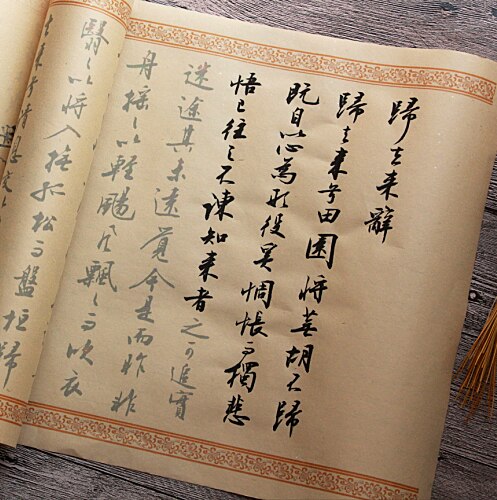 歸去來辭
歸去來兮田園將蕪胡不歸
既自以心為形役奚惆悵而獨悲
悟已往之不諫知來者之可追實
迷途其未遠覺今是而昨非
舟搖〻以輕颺風飄〻而吹衣
翳〻以將入撫孤松而盤桓歸
去來兮請息交